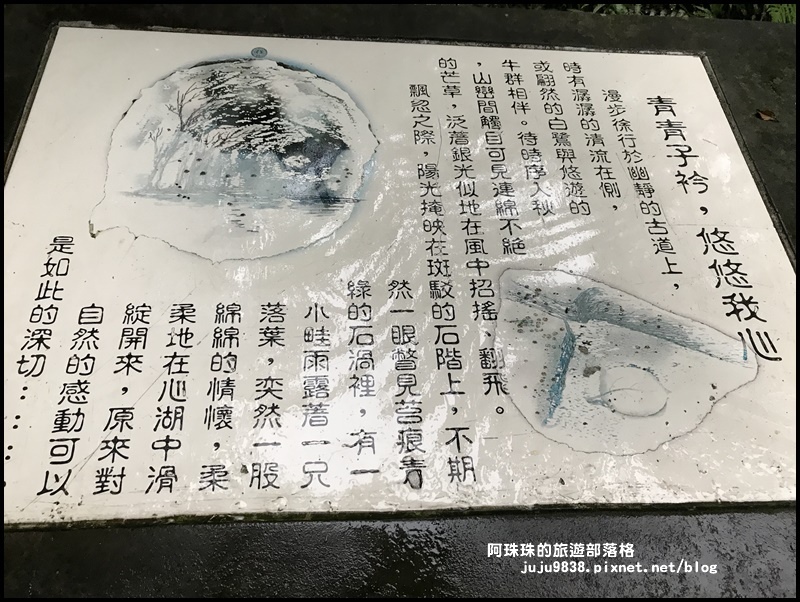 青青子衿，悠悠我心
漫步徐行於幽靜的古道上，
時有潺潺的清流在側，
或翩然的白鷺與悠遊的
牛群相伴。待時序入秋
，山巒間觸目可見連綿不絕
的芒草，泛著銀光似地在風中招搖、翻飛。
飄忽之際，陽光掩映在斑駁的石階上，不期
然一眼瞥見苔痕青
綠的石渦裡，有一
小畦雨露著一只
落葉，奕然一股
綿綿的情懷，柔
柔地在心湖中滑
綻開來，原來對
自然的感動可以
是如此的深切：：：：
阿珠珠的旅遊部落格
juju9838.pixnet.net/blog